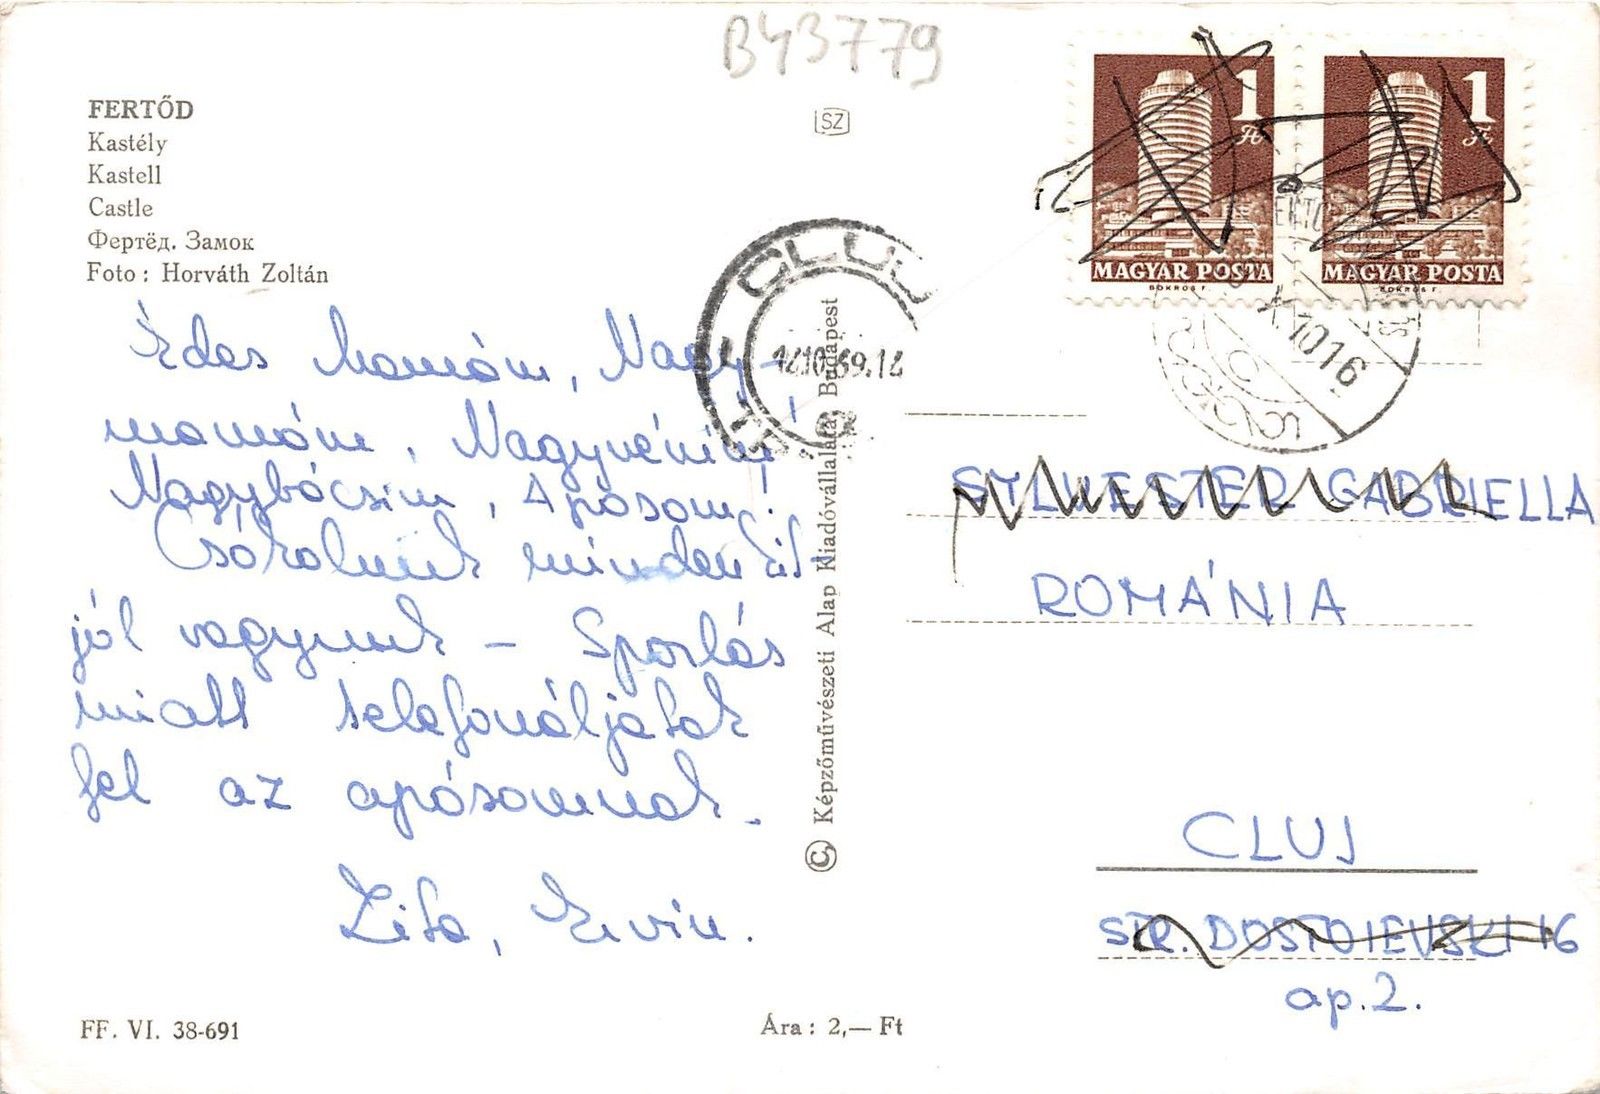 B43779
FERTŐD
Kastély
Kastell
Castle
Фертёд. Замок
Foto : Horváth Zoltán
SZ
Édes Mamám, Nagy-
mamám, Nagynéném!
Nagybácsim, Apósom!
Csókolunk mindenkit
jól vagyunk – Spórlás
miatt telefonáljatok
fel az apósomnak.
Zita, Ervin.
FF. VI. 38-691
Ára : 2,— Ft
© Képzőművészeti Alap Kiadóvállalata, Budapest
CLUJ
14.10.69.14
1 Ft
MAGYAR POSTA
BOKROS F.
1 Ft
MAGYAR POSTA
BOKROS F.
X. 10 16
SYLWESTER GABRIELLA
ROMÁNIA
CLUJ
STR. DOSTOIEVSKI 16
ap. 2.